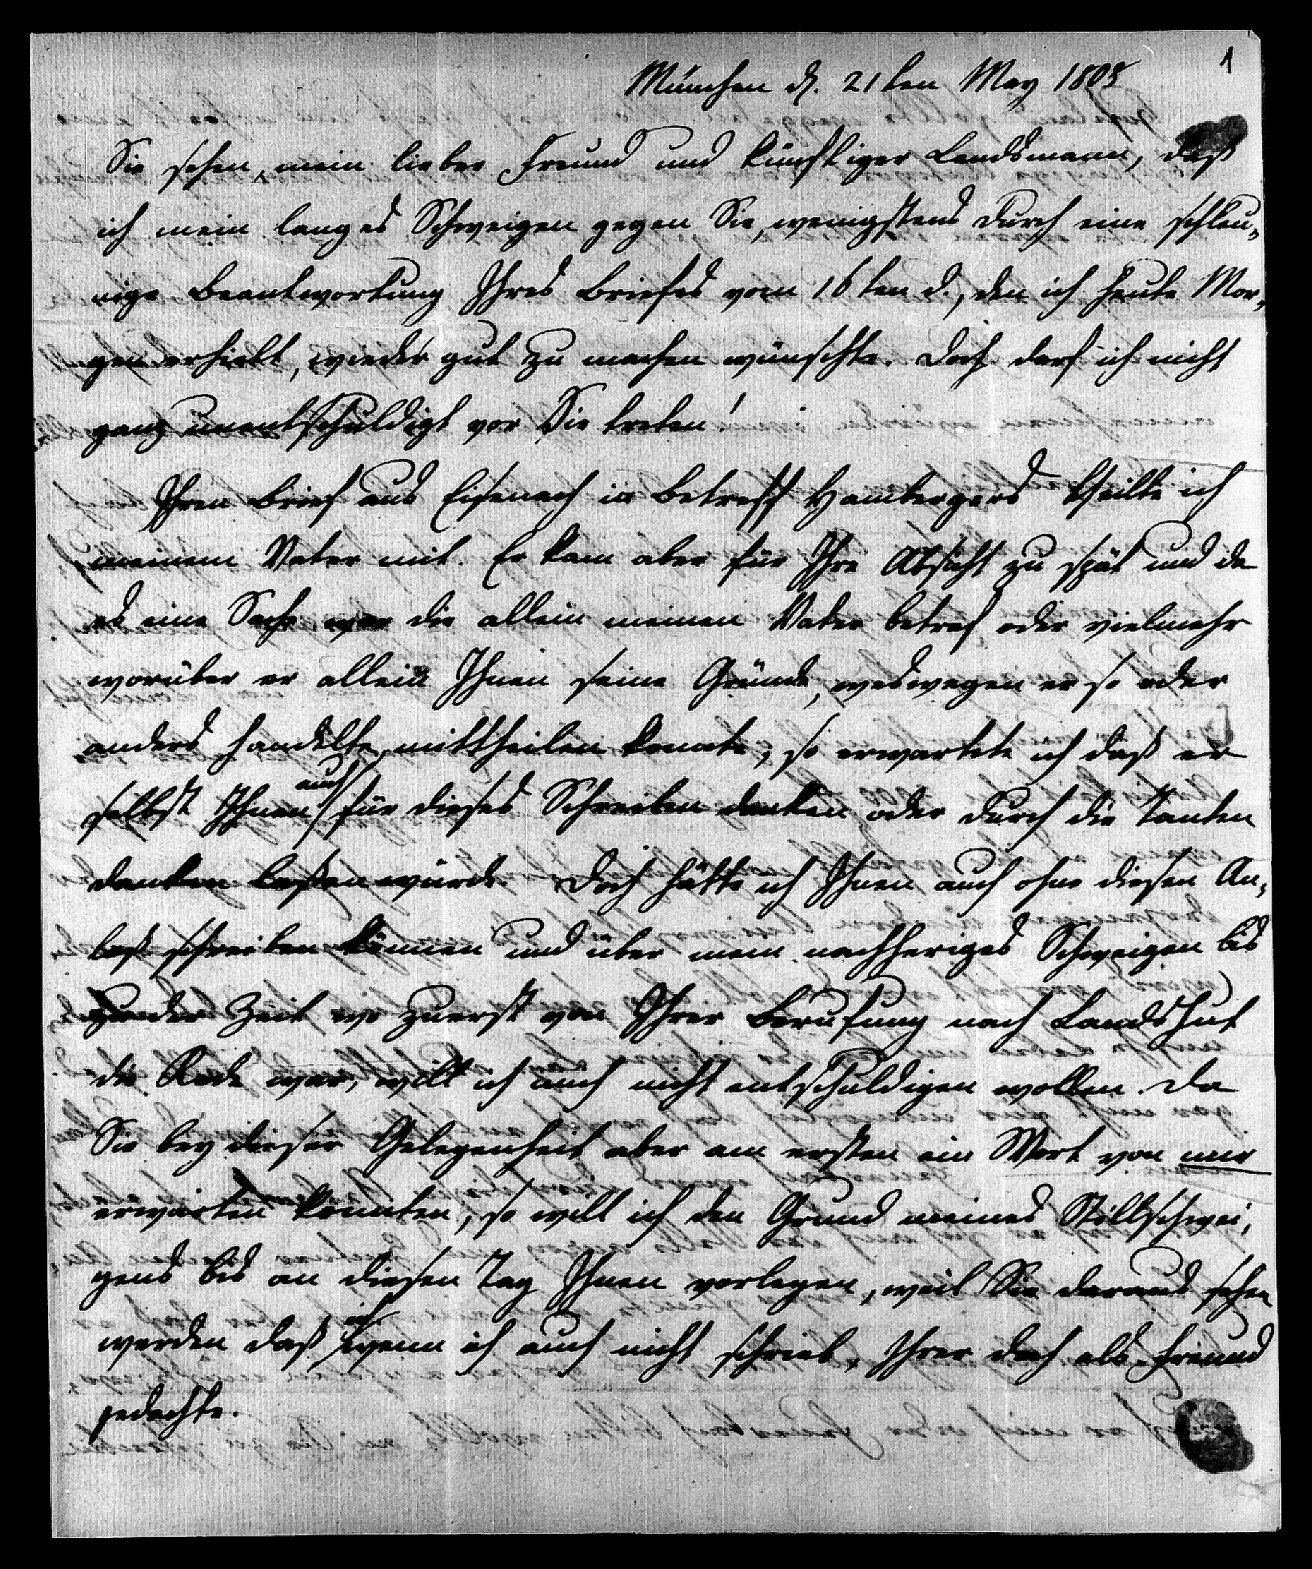 1
München d. 21ten May 1808
Sie sehen, mein lieber Freund und künftiger Landsmann, daß
ich mein langes Schweigen gegen Sie, wenigstens durch eine schleu-
nige Beantwortung Ihres Briefes vom 16ten d., den ich heute Mor-
gen erhielt, wieder gut zu machen wünschte. Doch darf ich nicht
ganz unentschuldigt vor Sie treten!
Ihren Brief aus Eisenach in Betreff Hambergers theilte ich
meinem Vater mit. Er kam aber für Ihre Absicht zu spät und da
es eine Sache war die allein meinen Vater betraf oder vielmehr
worüber er allein Ihnen seine Gründe, weswegen er so oder
anders handelte, mittheilen konnte, so erwartete ich daß er
selbst Ihnen auch für dieses Schreiben danken oder durch die Tanten
danken laßen würde. Doch hätte ich Ihnen auch ohne diesen An-
laß schreiben können und über mein nachheriges Schweigen bis
zu der Zeit wo zuerst von Ihrer Berufung nach Landshut
die Rede war, will ich auch nicht entschuldigen wollen. Da
Sie bey dieser Gelegenheit aber am ersten ein Wort von mir
erwarten konnten, so will ich den Grund meines Stillschwei-
gens bis an diesen Tag Ihnen vorlegen, weil Sie daraus sehen
werden daß ich wenn ich auch nicht schrieb, Ihrer doch als Freund
gedachte.